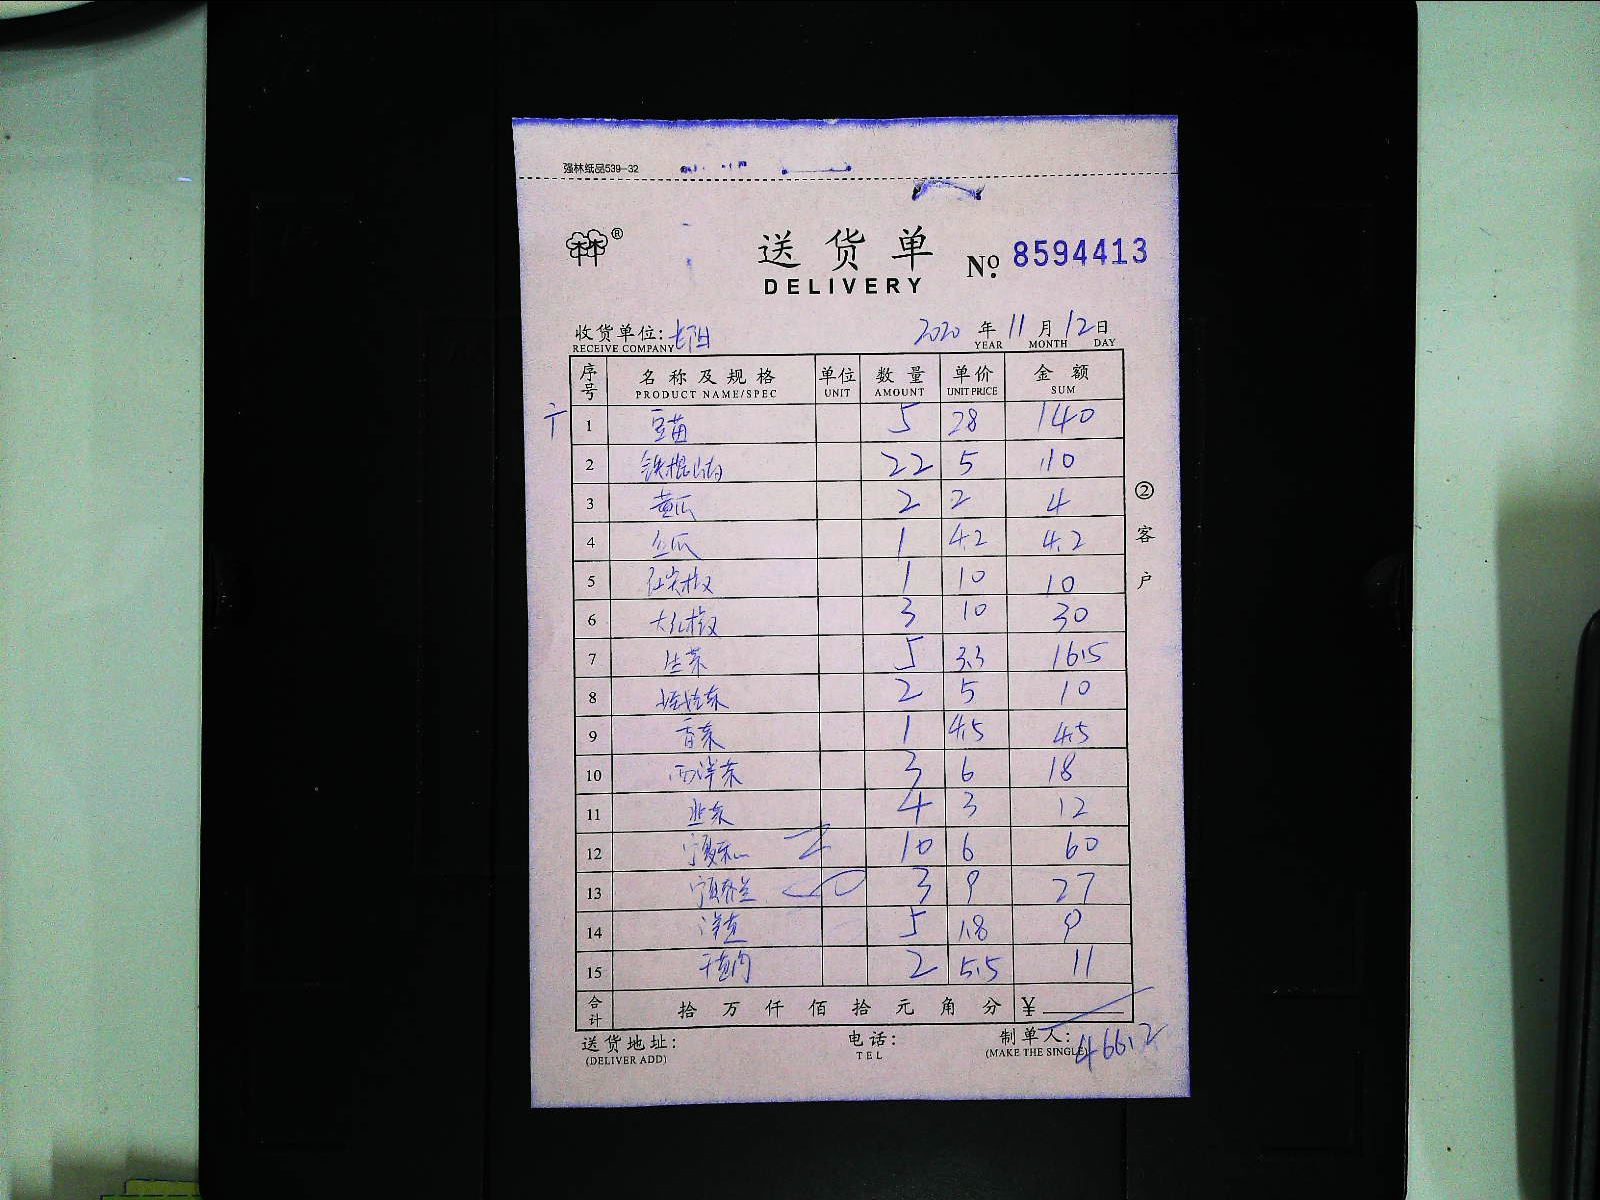 强林纸品539-32
林®
送货单 Nº 8594413
DELIVERY
收货单位: 2020 年 11 月 12 日
RECEIVE COMPANY YEAR MONTH DAY
序号 名称及规格 单位 数量 单价 金额
PRODUCT NAME/SPEC UNIT AMOUNT UNIT PRICE SUM
1 豆苗 5 28 140
2 铁棍山药 22 5 110
3 黄瓜 2 2 4
4 丝瓜 1 4.2 4.2
5 红尖椒 1 10 10
6 大红椒 3 10 30
7 生菜 5 3.3 16.5
8 娃娃菜 2 5 10
9 香菜 1 4.5 4.5
10 西洋菜 3 6 18
11 韭菜 4 3 12
12 宁夏菜心 10 6 60
13 宁夏芥兰 3 9 27
14 洋葱 5 1.8 9
15 干葱肉 2 5.5 11
合计 拾 万 仟 佰 拾 元 角 分 ¥
466.2
送货地址: 电话: 制单人:
(DELIVER ADD) TEL (MAKE THE SINGLE)
② 客户